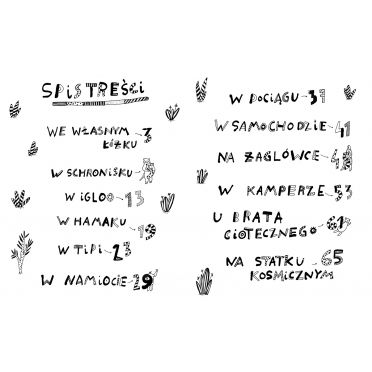 SPIS TREŚCI
WE WŁASNYM
ŁÓŻKU 7
W SCHRONISKU
W IGLOO 13
W HAMAKU 19
W TIPI 23
W NAMIOCIE 29
W POCIĄGU 31
W SAMOCHODZIE 41
NA ŻAGLÓWCE
W KAMPERZE 53
U BRATA
CIOTECZNEGO 61
NA STATKU 65
KOSMICZNYM